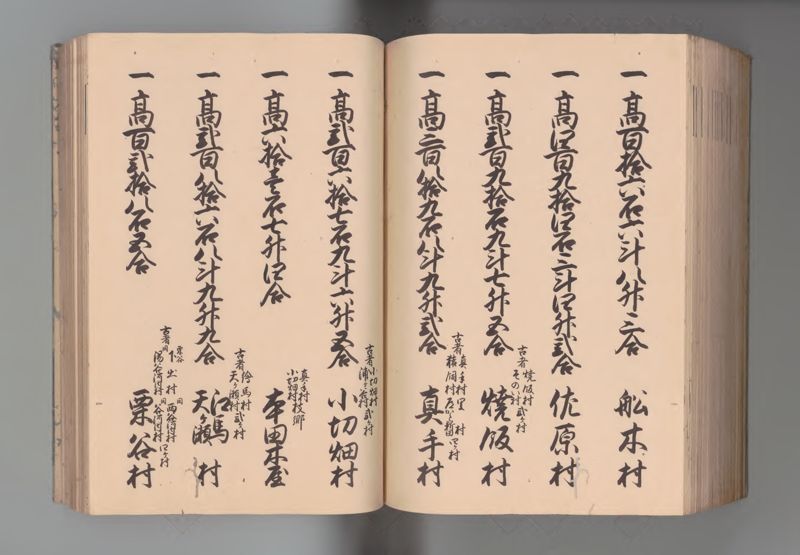 一高百拾六石六斗八升三合
舩木村
一高四百九拾四石三斗四升弐合
佐原村
一高弐百九拾石九斗七升五合
古者 焼坂村
そのい村 弐ヶ村
焼坂村
一高三百八拾九石八斗九升弐合
古者 真手村 里村
真手村
一高弐百六拾七石九斗六升五合
古者 小切畑村
浦ヶ谷村 弐ヶ村
小切畑村
一高六拾壱石七升四合
真手村
小切畑村 枝郷
本田木屋
一高弐百八拾六石八斗九升九合
古者 絵馬村
天ヶ瀬村 弐ヶ村
江馬
天ヶ瀬 村
一高百弐拾八石五合
古者
栗谷村